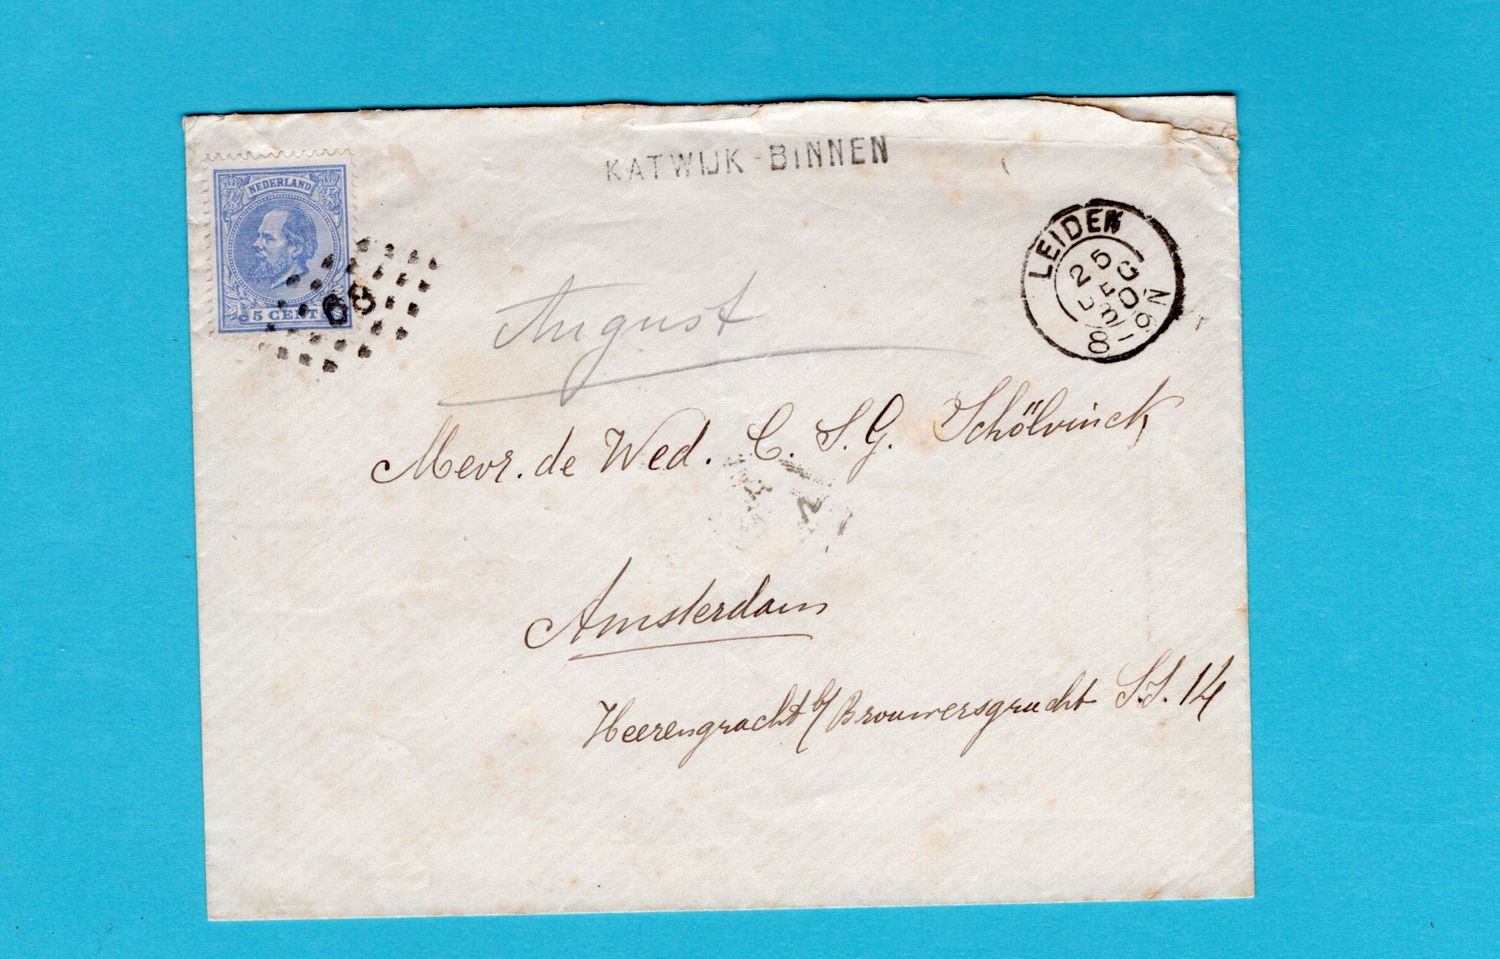 KATWIJK-BINNEN
NEDERLAND
5 CENT
68
LEIDEN
25
DEC
90
8-9N
August
Mevr. de Wed. C. S. G. Schölvinck
Amsterdam
Heerengracht b/ Brouwersgracht S.S. 14